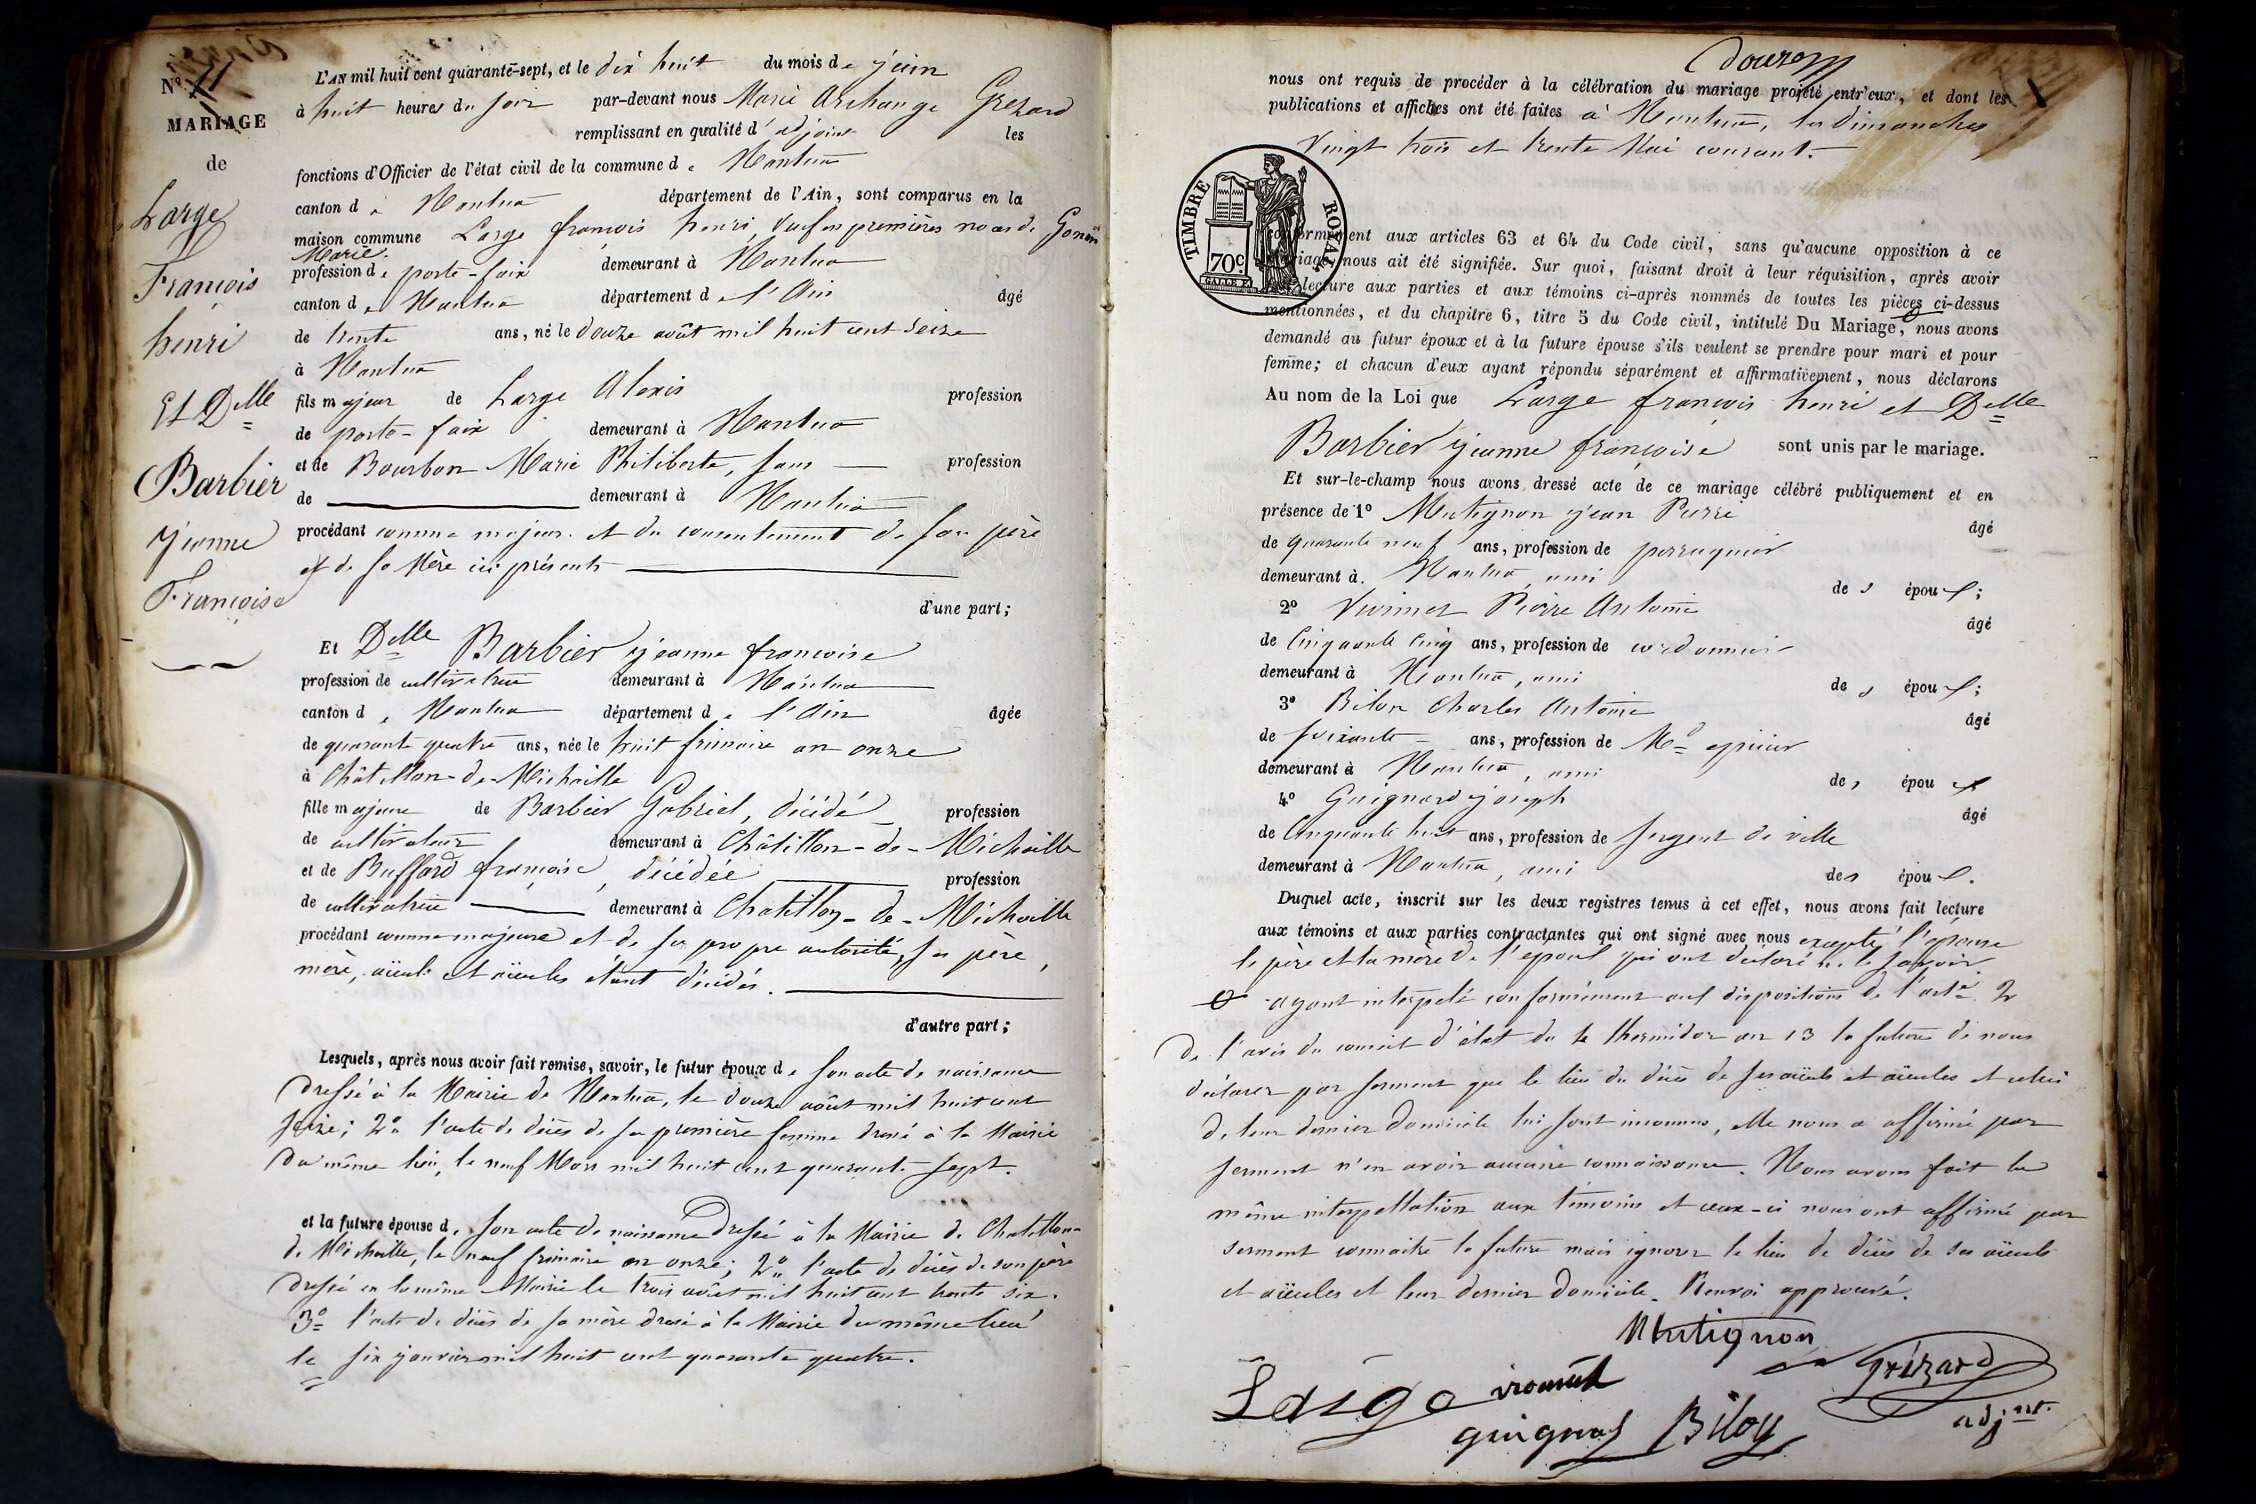 N.º 11
MARIAGE
de
Large
François
henri
Et Delle
Barbier
jeanne
Françoise
L'AN mil huit cent quarante-sept, et le dix huit du mois de juin
à huit heures du soir par-devant nous Marie Archange Grezard
remplissant en qualité d'adjoint les
fonctions d'Officier de l'état civil de la commune de Nantua
canton de Nantua département de l'Ain, sont comparus en la
maison commune Large françois henri, Veuf en premières noces de Gonen
Marie.
profession de porte-faix demeurant à Nantua
canton de Nantua département de l'Ain âgé
de trente ans, né le douze août mil huit cent seize
à Nantua
fils majeur de Large Alexis profession
de porte-faix demeurant à Nantua
et de Bourbon Marie Philiberte, sans profession
de demeurant à Nantua
procédant comme majeur et du consentement de son père
et de sa Mère ici présents
d'une part;
Et Delle Barbier jeanne françoise
profession de cultivatrice demeurant à Nantua
canton de Nantua département de l'Ain âgée
de quarante quatre ans, née le huit frimaire an onze
à Châtillon-de-Michaille
fille majeure de Barbier Gabriel, décédé profession
de cultivateur demeurant à Châtillon-de-Michaille
et de Buffard françoise, décédée profession
de cultivatrice demeurant à Chatillon-de-Michaille
procédant comme majeure et de sa propre autorité, ses père,
mère, aïeuls et aïeules étant décédés.
d'autre part;
Lesquels, après nous avoir fait remise, savoir, le futur époux de son acte de naissance
dressé à la Mairie de Nantua, le douze août mil huit cent
seize; 2º l'acte de décès de sa première femme dressé à la Mairie
du même lieu, le neuf Mars mil huit cent quarante sept.
et la future épouse de son acte de naissance dressé à la Mairie de Chatillon-
de Michaille, le neuf frimaire an onze; 2º l'acte de décès de son père
dressé en la même Mairie le trois août mil huit cent trente six.
3º l'acte de décès de sa mère dressé à la Mairie du même lieu
le six janvier mil huit cent quarante quatre.
nous ont requis de procéder à la célébration du mariage projeté entr'eux, et dont les
publications et affiches ont été faites à Nantua, les dimanches
vingt trois et trente Mai courant.
TIMBRE ROYAL
70c
conformément aux articles 63 et 64 du Code civil, sans qu'aucune opposition à ce
mariage nous ait été signifiée. Sur quoi, faisant droit à leur réquisition, après avoir
lecture aux parties et aux témoins ci-après nommés de toutes les pièces ci-dessus
mentionnées, et du chapitre 6, titre 5 du Code civil, intitulé Du Mariage, nous avons
demandé au futur époux et à la future épouse s'ils veulent se prendre pour mari et pour
femme; et chacun d'eux ayant répondu séparément et affirmativement, nous déclarons
Au nom de la Loi que Large françois henri et Delle
Barbier jeanne françoise sont unis par le mariage.
Et sur-le-champ nous avons dressé acte de ce mariage célébré publiquement et en
présence de 1º Mutignon jean Pierre âgé
de quarante neuf ans, profession de perruquier
demeurant à Nantua, ami des époux;
2º Pierre Antoine âgé
de Cinquante Cinq ans, profession de cordonnier
demeurant à Nantua, ami des époux;
3º Biloy Charles Antoine âgé
de soixante ans, profession de Md epicier
demeurant à Nantua, ami des époux
4º Guignard joseph âgé
de Cinquante huit ans, profession de sergent de ville
demeurant à Nantua, ami des époux.
Duquel acte, inscrit sur les deux registres tenus à cet effet, nous avons fait lecture
aux témoins et aux parties contractantes qui ont signé avec nous excepté l'épouse
le père et la mère de l'époux qui ont déclaré ne le savoir.
ayant interpelé conformément aux dispositions de l'acte 2
de l'avis du conseil d'état du 4 thermidor an 13 la future de nous
déclarer par serment que le lieu du décès de ses aïeuls et aïeules et celui
de leur dernier domicile lui sont inconnus, elle nous a affirmé par
serment n'en avoir aucune connaissance. Nous avons fait la
même interpellation aux témoins et ceux-ci nous ont affirmé par
serment connaitre la future mais ignorer le lieu de décès de ses aïeuls
et aïeules et leur dernier domicile. Renvoi approuvé.
Mutignon
Large
Grézard
guignard Biloy adjnt.